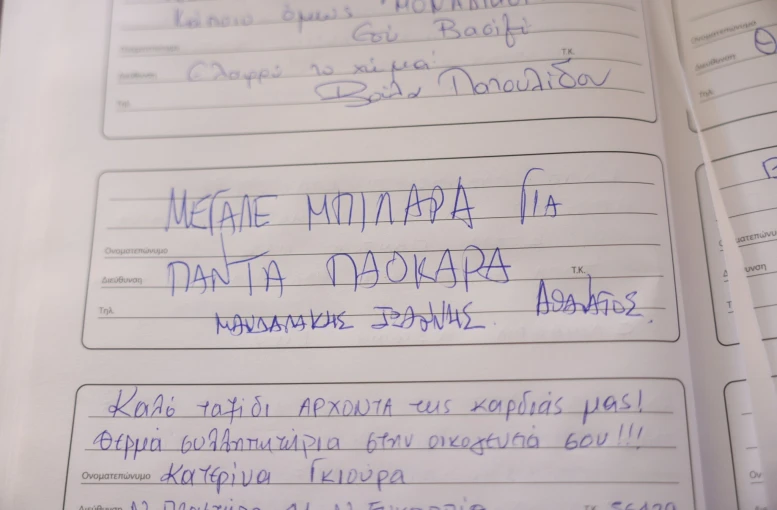 Κάποιο όμως "ΜΟΝΑΔΙΚΟ"
Εσύ Βασίλη
Ονοματεπώνυμο
Διεύθυνση Ελαφρύ το χώμα! Τ.Κ.
Τηλ. Βούλα Παπουλίδου
ΜΕΓΑΛΕ ΜΠΙΛΑΡΑ ΓΙΑ
Ονοματεπώνυμο
Διεύθυνση ΠΑΝΤΑ ΠΑΟΚΑΡΑ Τ.Κ.
Τηλ. ΜΑΝΔΑΛΑΚΗΣ ΙΩΑΝΝΗΣ. ΑΘΑΝΑΤΟΣ.
Καλό ταξίδι ΑΡΧΟΝΤΑ της καρδιάς μας!
Θερμά συλλητητήρια στην οικογένειά σου!!!
Ονοματεπώνυμο Κατερίνα Γκιούρα
Διεύθυνση
Ονοματεπώνυμο
Διεύθυνση
Τηλ.